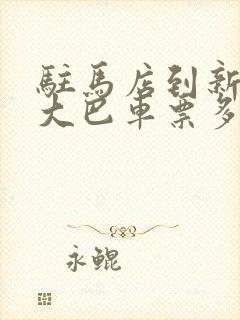 駐馬店到新
大巴車票多
永鯤